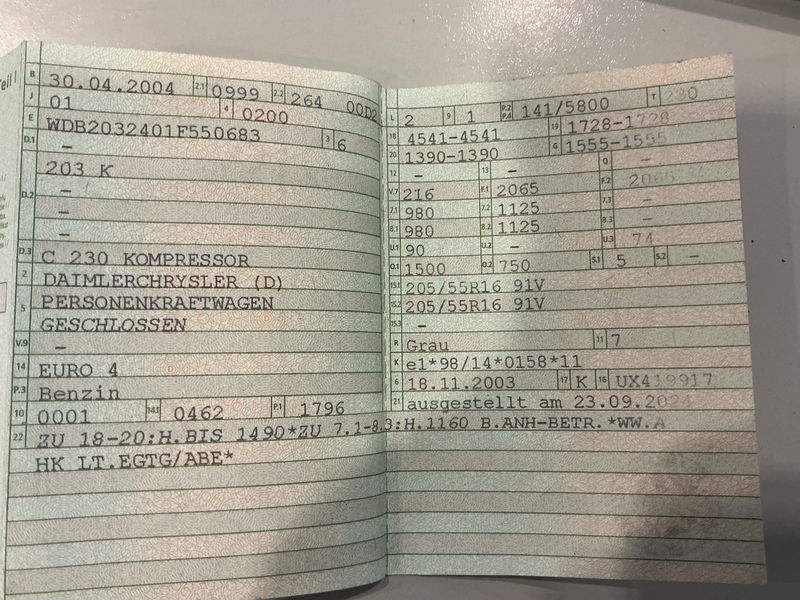 Teil I
B 30.04.2004 2.1 0999 2.2 264 00D2
J 01 4 0200
E WDB2032401F550683 3 6
D.1 –
203 K
D.2 –
–
–
D.3 C 230 KOMPRESSOR
2 DAIMLERCHRYSLER (D)
5 PERSONENKRAFTWAGEN
GESCHLOSSEN
V.9 –
14 EURO 4
P.3 Benzin
10 0001 14.1 0462 P.1 1796
L 2 9 1 P.2 P.4 141/5800 T 230
18 4541-4541 19 1728-1728
20 1390-1390 G 1555-1555
12 – 13 – Q –
V.7 216 F.1 2065 F.2 2065
7.1 980 7.2 1125 7.3 –
8.1 980 8.2 1125 8.3 –
U.1 90 U.2 – U.3 74
O.1 1500 O.2 750 S.1 5 S.2 –
15.1 205/55R16 91V
15.2 205/55R16 91V
15.3 –
R Grau 11 7
K e1*98/14*0158*11
6 18.11.2003 17 K 16 UX419917
21 ausgestellt am 23.09.2024
22 ZU 18-20:H.BIS 1490*ZU 7.1-8.3:H.1160 B.ANH-BETR.*WW.A
HK LT.EGTG/ABE*